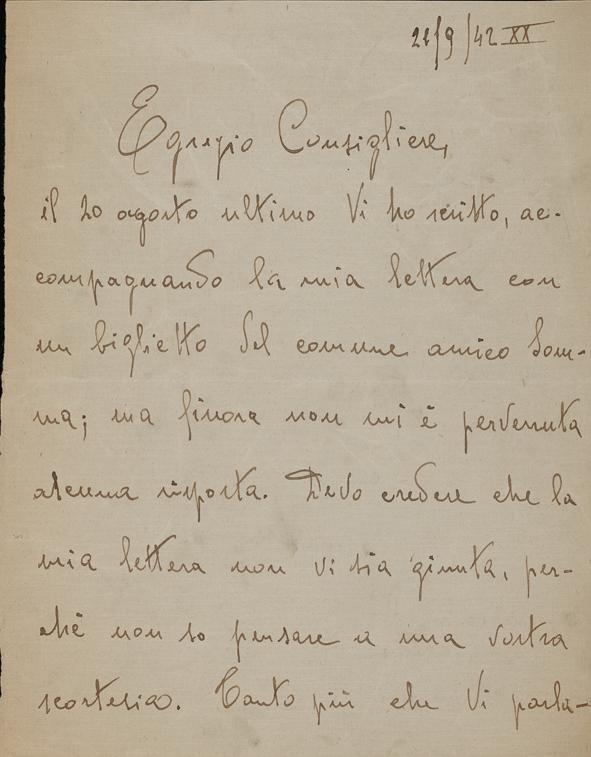 21/9/42 XX
Egregio Consigliere,
il 20 agosto ultimo Vi ho scritto, ac-
compagnando la mia lettera con
un biglietto del comune amico Som-
ma; ma finora non mi è pervenuta
alcuna risposta. Devo credere che la
mia lettera non vi sia giunta, per-
chè non so pensare a una vostra
scortesia. Tanto più che Vi parla-